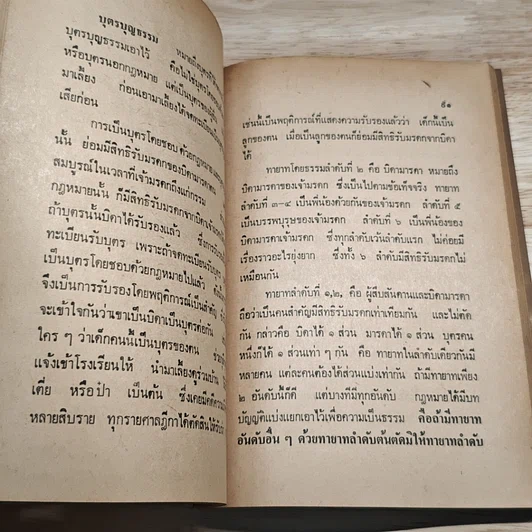 บุตรบุญธรรม หมายถึงบุตรที่
บุตรบุญธรรมเอาไว้ คือไม่ใช่บุตร
หรือบุตรนอกกฎหมาย แต่เป็นบุตรของผู้อื่น
มาเลี้ยง ก่อนเอามาเลี้ยงได้จดทะเบียน
เสียก่อน
การเป็นบุตรโดยชอบด้วยกฎหมายและ
นั้น ย่อมมีสิทธิรับมรดกของบิดามารดา
สมบูรณ์ในเวลาที่เจ้ามรดกถึงแก่กรรม
กฎหมายนั้น ก็มีสิทธิรับมรดกจากบิดา
ถ้าบุตรนั้นบิดาได้รับรองแล้ว ซึ่งการรับ
ทะเบียนรับบุตร เพราะถ้าจดทะเบียนรับ
เป็นบุตรโดยชอบด้วยกฎหมายไปแล้ว
จึงเป็นการรับรองโดยพฤติการณ์เป็นสำคัญ
จะเข้าใจกันว่าเขาเป็นบิดาเป็นบุตรต่อกัน
ใคร ๆ ว่าเด็กคนนี้เป็นบุตรของตน
แจ้งเข้าโรงเรียนให้ นำมาเลี้ยงดูร่วมบ้าน
เตี่ย หรือป๋า เป็นต้น ซึ่งเคยมีคดี
หลายสิบราย ทุกรายศาลฎีกาได้ตัดสินให้รับ
๕๑
เช่นนี้เป็นพฤติการณ์ที่แสดงความรับรองแล้วว่า เด็กนี้เป็น
ลูกของตน เมื่อเป็นลูกของตนก็ย่อมมีสิทธิรับมรดกจากบิดา
ได้
ทายาทโดยธรรมลำดับที่ ๒ คือ บิดามารดา หมายถึง
บิดามารดาของเจ้ามรดก ซึ่งเป็นไปตามข้อเท็จจริง ทายาท
ลำดับที่ ๓-๔ เป็นพี่น้องด้วยกันของเจ้ามรดก ลำดับที่ ๕
เป็นบรรพบุรุษของเจ้ามรดก ลำดับที่ ๖ เป็นพี่น้องของ
บิดามารดาเจ้ามรดก ซึ่งทุกลำดับเว้นลำดับแรก ไม่ค่อยมี
เรื่องราวอะไรยุ่งยาก ซึ่งทั้ง ๖ ลำดับมีสิทธิรับมรดกไม่
เหมือนกัน
ทายาทลำดับที่ ๑,๒. คือ ผู้สืบสันดานและบิดามารดา
ถือว่าเป็นคนสำคัญมีสิทธิรับมรดกเท่าเทียมกัน และไม่ตัด
กัน กล่าวคือ บิดาได้ ๑ ส่วน มารดาได้ ๑ ส่วน บุตรคน
หนึ่งก็ได้ ๑ ส่วนเท่า ๆ กัน คือ ทายาทในลำดับเดียวกันมี
หลายคน แต่ละคนต้องได้ส่วนแบ่งเท่ากัน ถ้ามีทายาทเพียง
๒ อันดับนี้ก็ดี แต่บางทีมีทุกอันดับ กฎหมายได้มีบท
บัญญัติแบ่งแยกเอาไว้เพื่อความเป็นธรรม คือถ้ามีทายาท
อันดับอื่น ๆ ด้วยทายาทลำดับต้นตัดมิให้ทายาทลำดับ